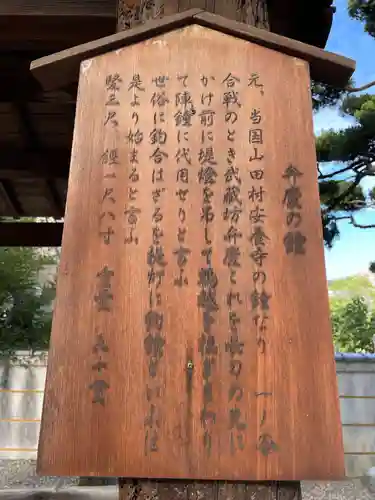 弁慶の鐘
元、当国山田村安養寺の鐘なり 一ノ谷
合戦のとき武蔵坊弁慶これを長刀の先に
かけ前に提燈を吊して鵯越を
て陣鐘に代用せりと言ふ
世俗に釣合はざるを提灯に釣鐘といふは
是より始まると言ふ
竪三尺、径一尺八寸 重量 三十貫